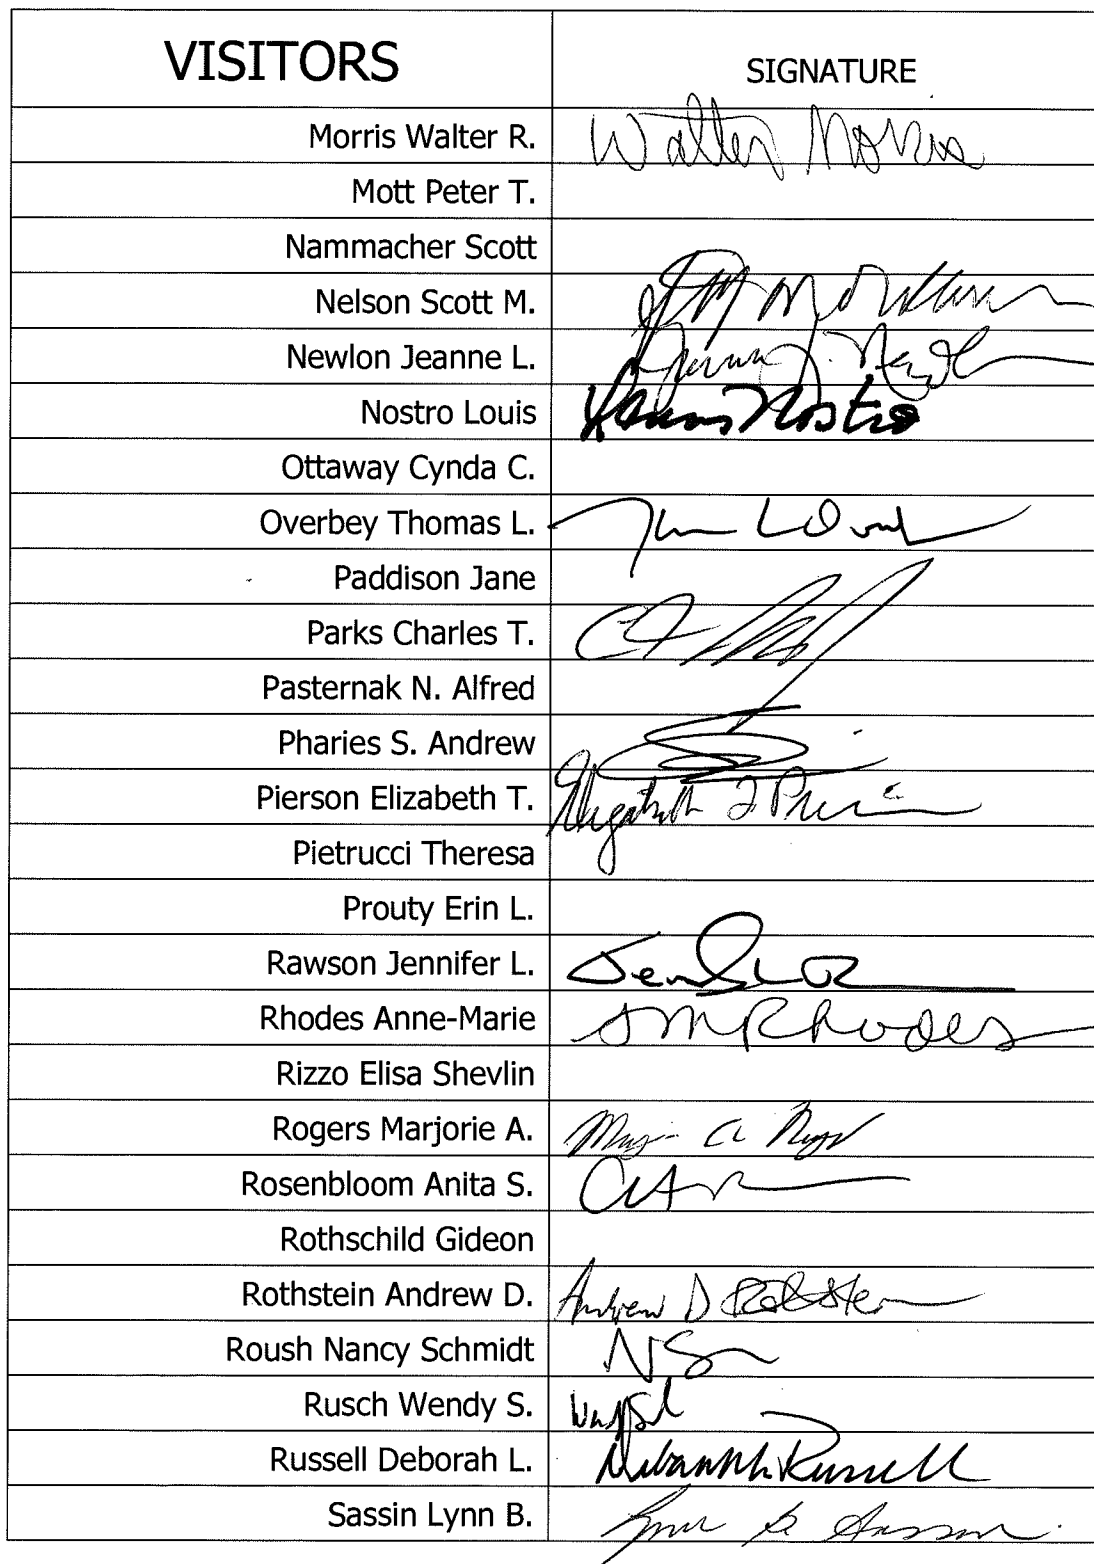 VISITORS SIGNATURE
Morris Walter R. Walter Morris
Mott Peter T.
Nammacher Scott
Nelson Scott M.
Newlon Jeanne L.
Nostro Louis Louis Nostro
Ottaway Cynda C.
Overbey Thomas L.
Paddison Jane
Parks Charles T.
Pasternak N. Alfred
Pharies S. Andrew
Pierson Elizabeth T. Elizabeth T Pierson
Pietrucci Theresa
Prouty Erin L.
Rawson Jennifer L.
Rhodes Anne-Marie AMRhodes
Rizzo Elisa Shevlin
Rogers Marjorie A.
Rosenbloom Anita S.
Rothschild Gideon
Rothstein Andrew D. Andrew D Rothstein
Roush Nancy Schmidt
Rusch Wendy S.
Russell Deborah L. Deborah L. Russell
Sassin Lynn B. Lynn B Sassin